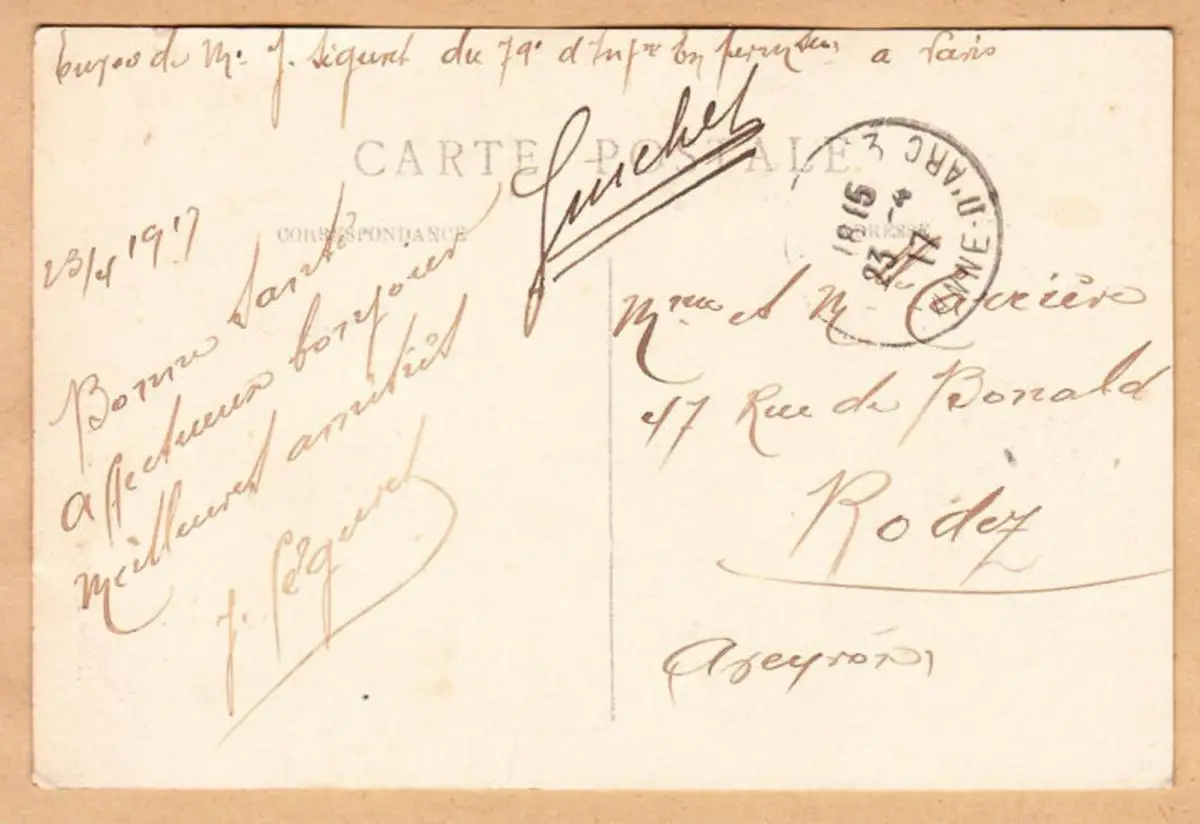 Envoi de Mr J. Séguret du 79e d'Infie en permson a Paris
CARTE POSTALE
Guichet
CORRESPONDANCE
ADRESSE
23/4 1917
Bonne santé
affectueux bonjours
meilleures amitiés
J. Séguret
NNE-D'ARC
18 15
23 -4
17
Mme et Mr Carrière
47 Rue de Bonald
Rodez
Aveyron